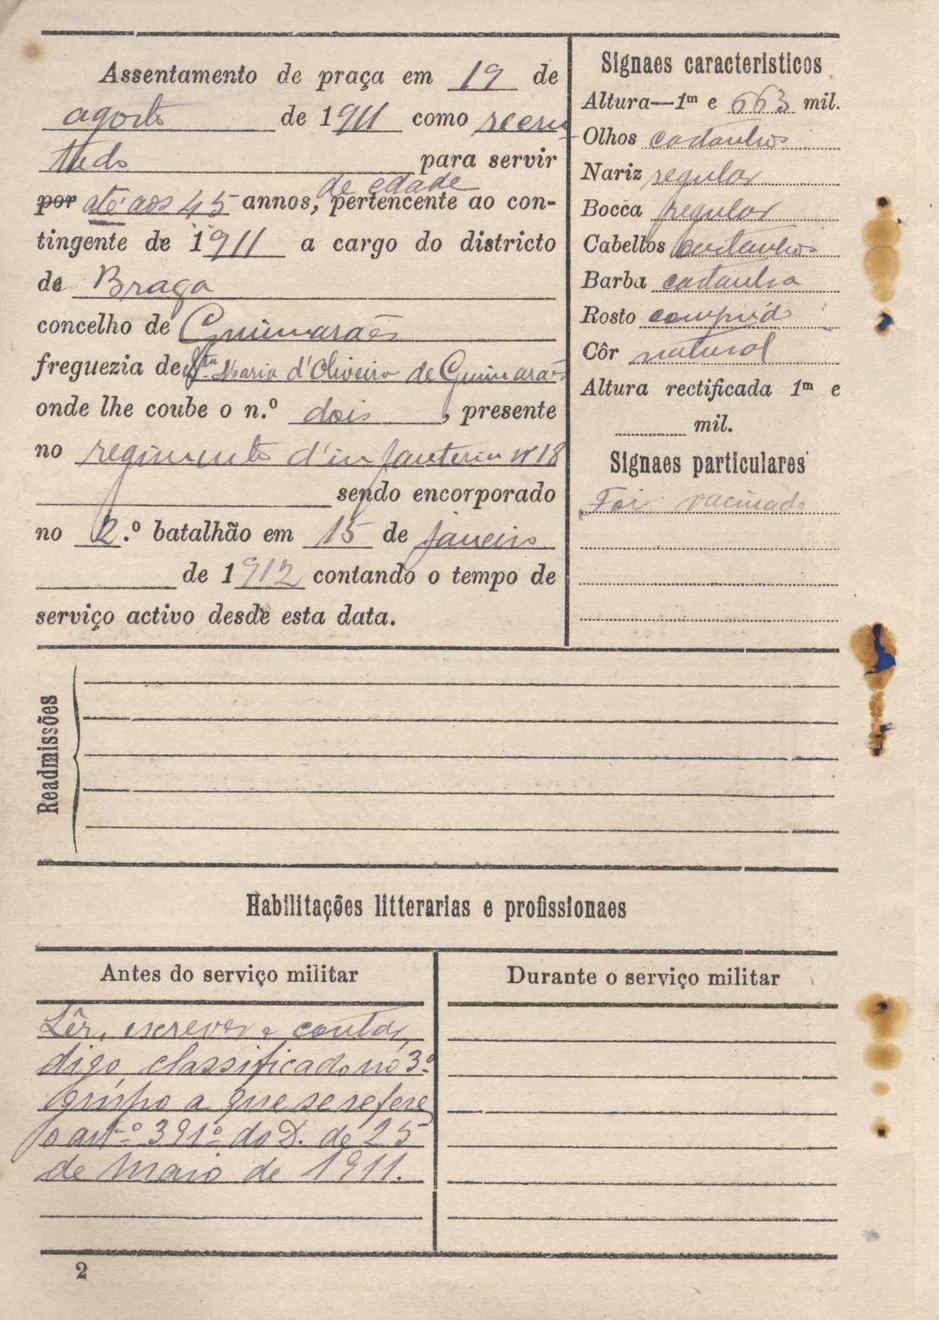 Assentamento de praça em 19 de
agosto de 1911 como recru
tado para servir
por até aos 45 annos, de edade pertencente ao con-
tingente de 1911 a cargo do districto
de Braga
concelho de Guimarães
freguezia de Sta. Maria d'Oliveira de Guimarães
onde lhe coube o n.º dois, presente
no regimento d'infanteria nº 18
sendo encorporado
no 2.º batalhão em 15 de janeiro
de 1912 contando o tempo de
serviço activo desde esta data.
Signaes caracteristicos
Altura—1m e 663 mil.
Olhos castanhos
Nariz regular
Bocca regular
Cabellos castanhos
Barba castanha
Rosto comprido
Côr natural
Altura rectificada 1m e
mil.
Signaes particulares
Foi vacinado
Readmissões
Habilitações litterarias e profissionaes
Antes do serviço militar
Lêr, escrever e contar,
digo classificado no 3.º
grupo a que se refere
o artº 391º do D. de 25
de Maio de 1911.
Durante o serviço militar
2